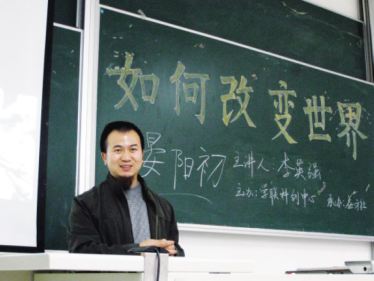 如何改变世界
晏阳初 主讲人：李英强
主办：学联科创中心 承办：晏社